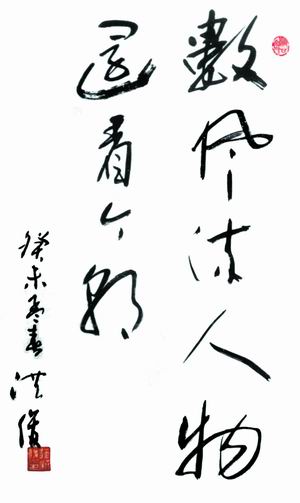 數风流人物
還看今朝
癸未孟春 洪